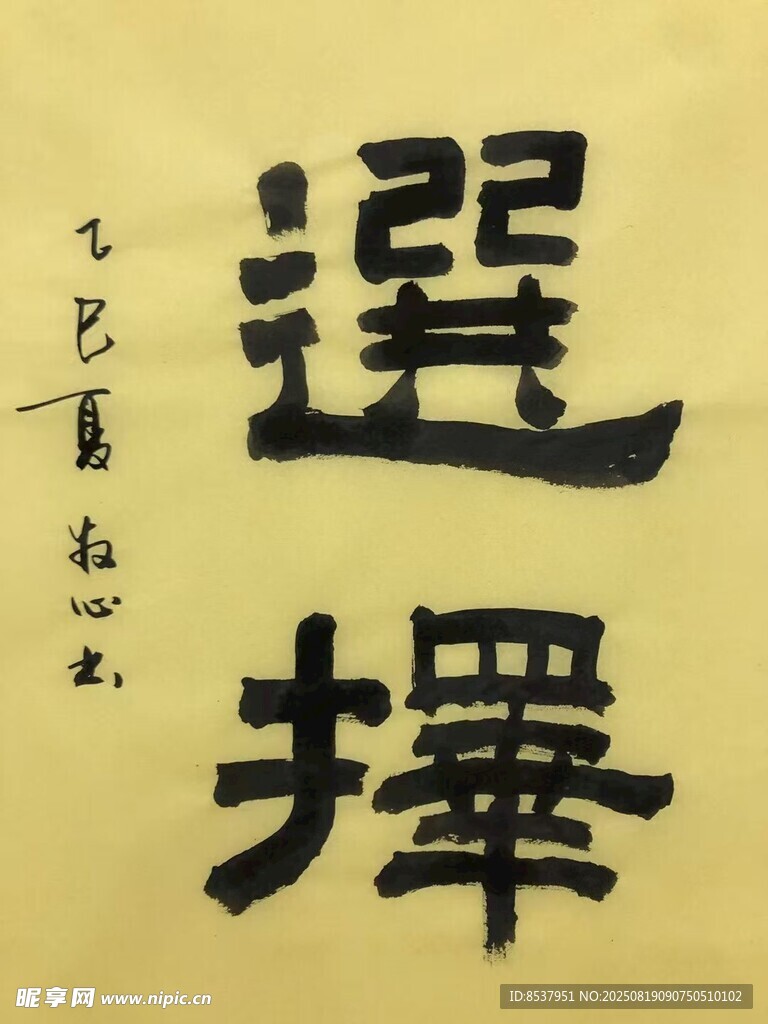 選擇
乙巳夏 牧心书
昵享网 www.nipic.cn
ID:8537951 NO:20250819090750510102